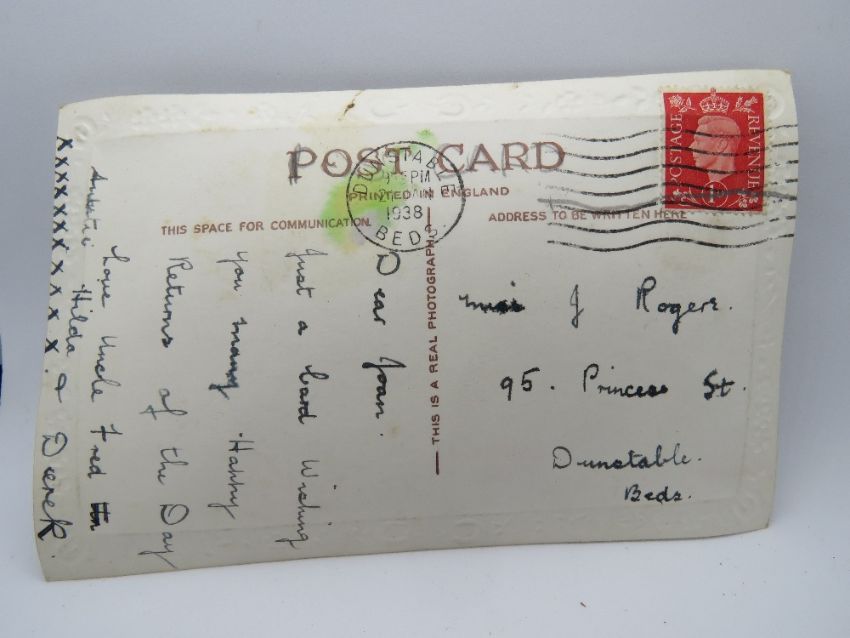 POST CARD
PRINTED IN ENGLAND
THIS SPACE FOR COMMUNICATION
ADDRESS TO BE WRITTEN HERE
THIS IS A REAL PHOTOGRAPH
DUNSTABLE
PM
1938
BEDS.
POSTAGE
REVENUE
1D
Dear Joan.
Just a Card Wishing
You many Happy
Returns of the Day
Love Uncle Fred
Hilda & Derek.
xxxxxxxxxxx.
Miss J Rogers.
95. Princess St.
Dunstable.
Beds.